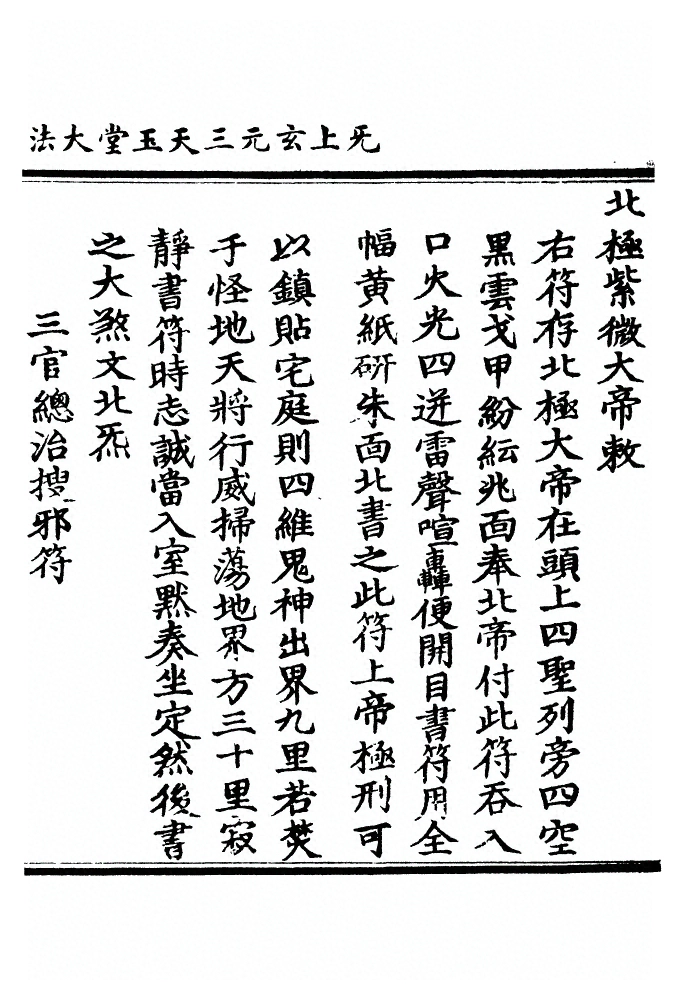 无上玄元三天玉堂大法
北極紫微大帝敕
右符存北極大帝在頭上四聖列旁四空
黑雲戈甲紛紜兆面奉北帝付此符吞入
口火光四迸雷聲喧轟便開目書符用全
幅黃紙研朱面北書之此符上帝極刑可
以鎮貼宅庭則四維鬼神出界九里若焚
于怪地天將行威掃蕩地界方三十里寂
靜書符時志誠當入室默奏坐定然後書
之大煞文北炁
三官總治搜邪符